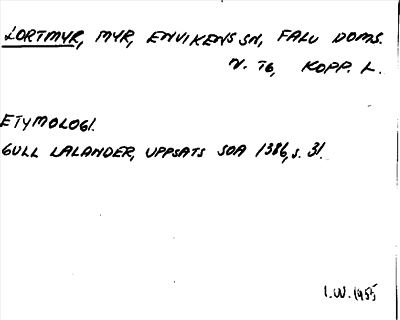 LORTMYR, MYR, ENVIKENS SN, FALU DOMS.
N. TG, KOPP. L.
ETYMOLOGI.
GULL LALANDER, UPPSATS SOA 1386, S. 31.
I.W. 1955